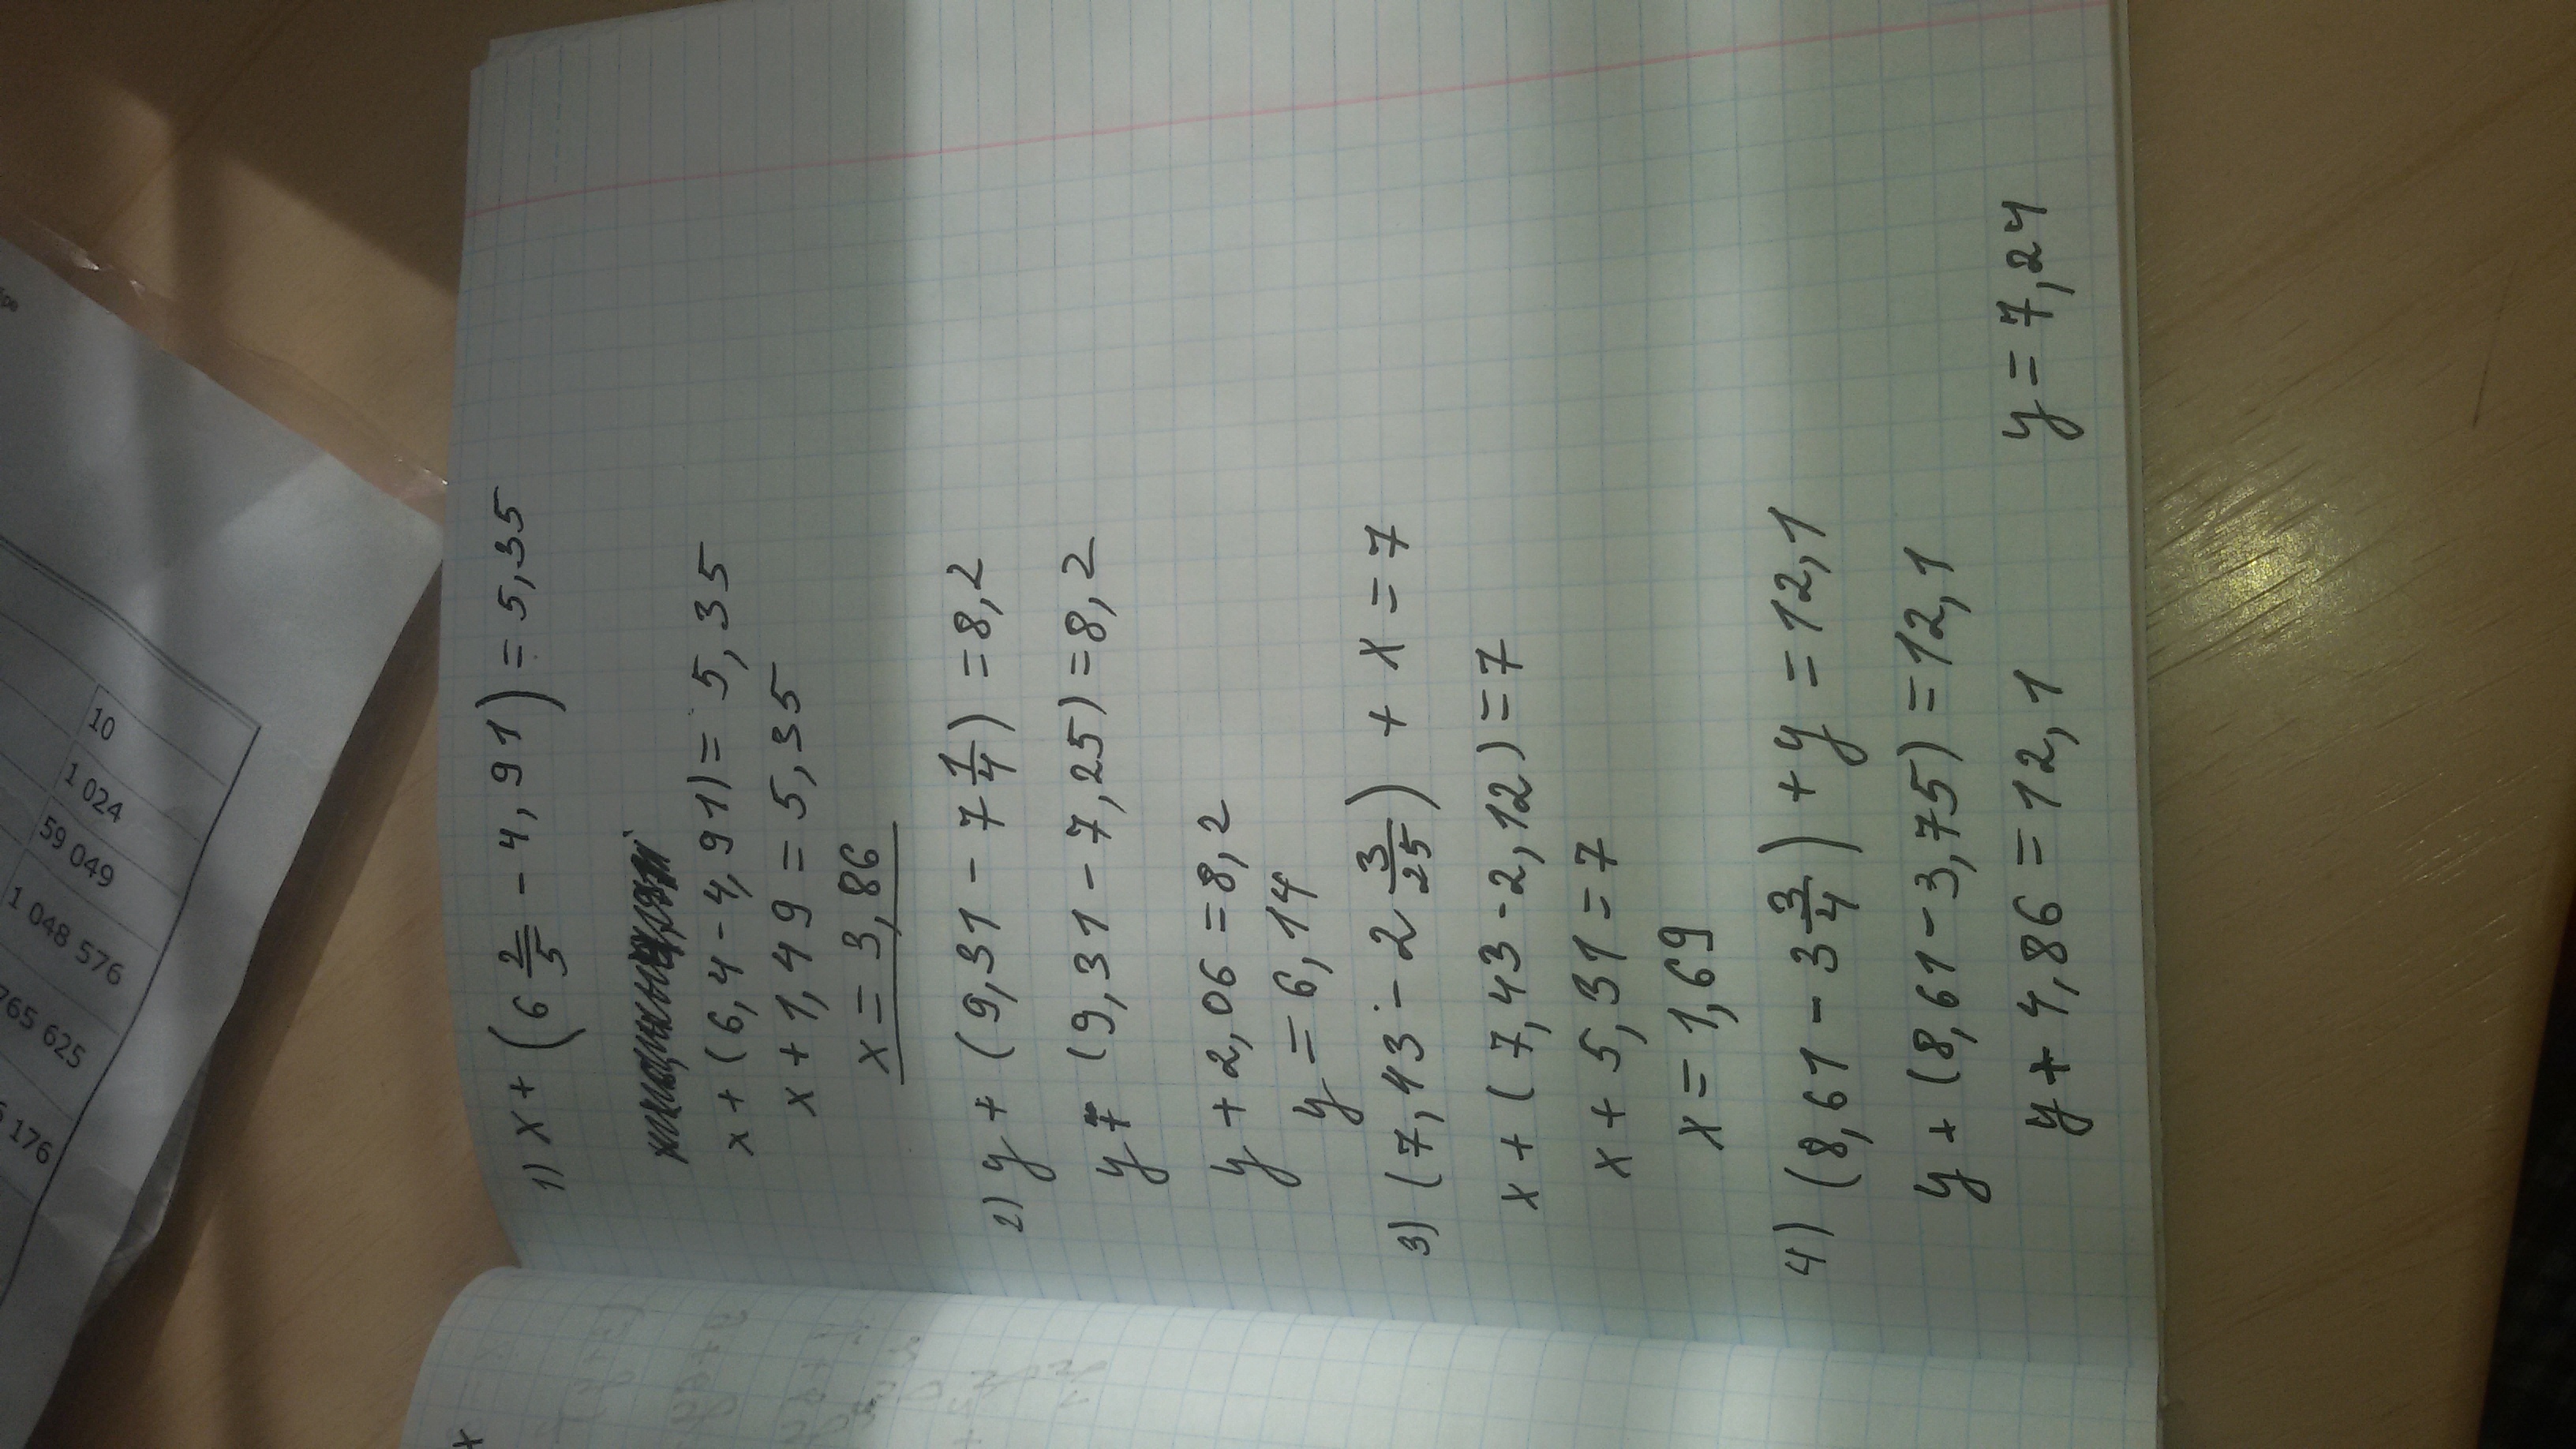 1) x + (6 2/5 - 4,91) = 5,35
x + (6,4 - 4,91) = 5,35
x + 1,49 = 5,35
x = 3,86
2) y + (9,31 - 7 1/4) = 8,2
y + (9,31 - 7,25) = 8,2
y + 2,06 = 8,2
y = 6,14
3) (7,43 - 2 3/25) + x = 7
x + (7,43 - 2,12) = 7
x + 5,31 = 7
x = 1,69
4) (8,61 - 3 3/4) + y = 12,1
y + (8,61 - 3,75) = 12,1
y + 4,86 = 12,1 y = 7,24
10
1 024
59 049
1 048 576
765 625
176